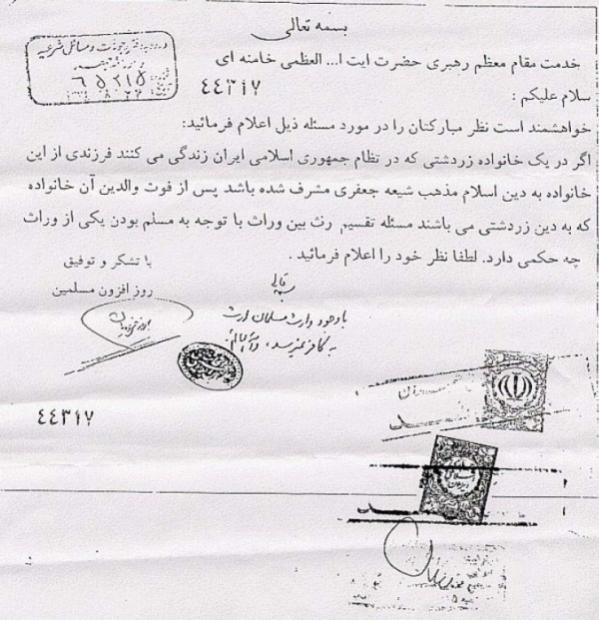 بسمه تعالی
دفتر
٦٥٢١٥
خدمت مقام معظم رهبری حضرت ایت ا... العظمی خامنه ای
٤٤٣١٧
سلام علیکم :
خواهشمند است نظر مبارکتان را در مورد مسئله ذیل اعلام فرمائید:
اگر در یک خانواده زردشتی که در نظام جمهوری اسلامی ایران زندگی می کنند فرزندی از این
خانواده به دین اسلام مذهب شیعه جعفری مشرف شده باشد پس از فوت والدین آن خانواده
که به دین زردشتی می باشند مسئله تقسیم رث بین وراث با توجه به مسلم بودن یکی از وراث
چه حکمی دارد. لطفا نظر خود را اعلام فرمائید .
با تشکر و توفیق
روز افزون مسلمین
بسمه تعالی
با وجود وارث مسلمان ارث
به کافر نمیرسد،
٤٤٣١٧